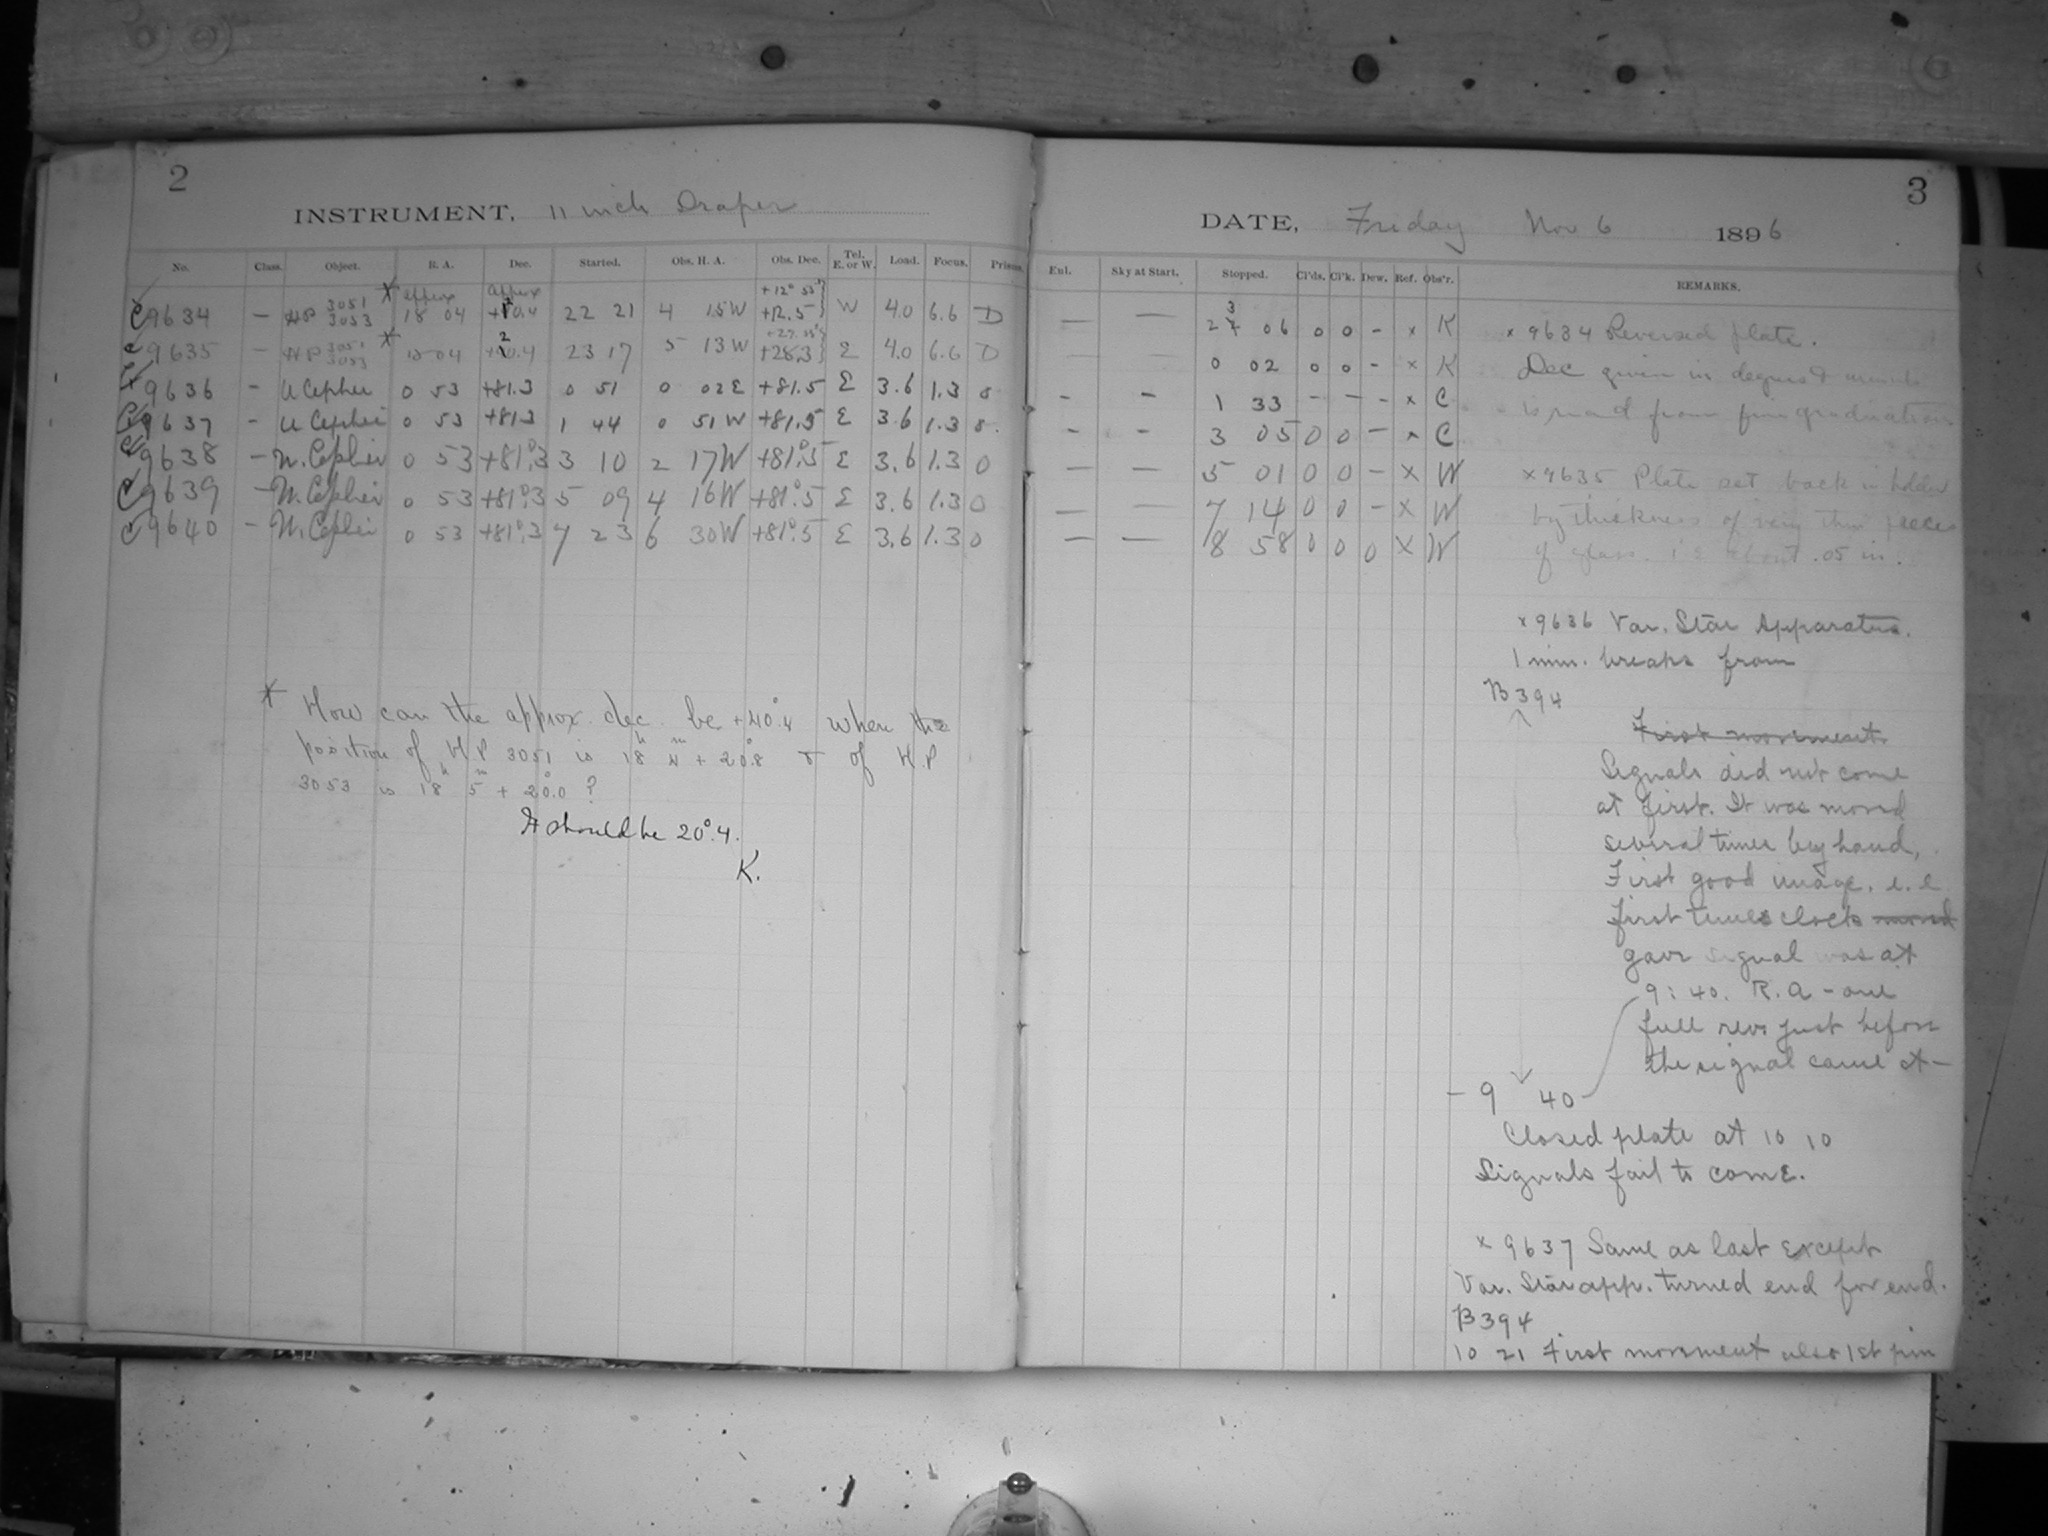 2
INSTRUMENT, 11 inch Draper
No. Class. Object. R. A. Dec. Started. Obs. H. A. Obs. Dec. Tel. E. or W. Load. Focus. Prisms.
C 9634 — HP 3051 3053 * approx 18 04 approx +20.4 22 21 4 15 W +12.5 W 4.0 6.6 D
C 9635 — HP 3051 3053 * 18 04 +20.4 23 17 5 13 W +28.3 E 4.0 6.6 D
9636 - U Cephei 0 53 +81.3 0 51 0 02 E +81.5 E 3.6 1.3 0
C 9637 - U Cephei 0 53 +81.3 1 44 0 51 W +81.5 E 3.6 1.3 0
C 9638 - U. Cephei 0 53 +81°.3 3 10 2 17 W +81°.5 E 3.6 1.3 0
C 9639 - U. Cephei 0 53 +81°.3 5 09 4 16 W +81°.5 E 3.6 1.3 0
C 9640 - U. Cephei 0 53 +81°.3 7 23 6 30 W +81°.5 E 3.6 1.3 0
* How can the approx. dec. be +40°.4 when the
position of H.P 3051 is 18h 4m + 20°.8 & of H.P
3053 is 18h 5m + 20°.0 ?
It should be 20°.4.
K.
3
DATE, Friday Nov 6 1896
Eul. Sky at Start. Stopped. Cl'ds. Cl'k. Dew. Ref. Obs'r. REMARKS.
— — 23 06 0 0 - x K
— — 0 02 0 0 - x K
- - 1 33 - - - x C
- - 3 05 0 0 - x C
— — 5 01 0 0 - x W
— — 7 14 0 0 - x W
— — 8 58 0 0 0 x W
x 9634 Reversed plate.
Dec given in degrees & minutes
is read from fine graduation
x 9635 Plate set back in holder
by thickness of very thin pieces
of glass. i e about .05 in.
x 9636 Var. Star Apparatus.
1 min. breaks from
B 394
First movement
Signals did not come
at first. It was moved
several times by hand,
First good image, i.e.
first times clock moved
gave signal was at
9:40. R.A - one
full rev. just before
the signal came at -
- 9 40
Closed plate at 10 10
Signals fail to come.
x 9637 Same as last except
Var. Star app. turned end for end.
B 394
10 21 First movement also 1st pin